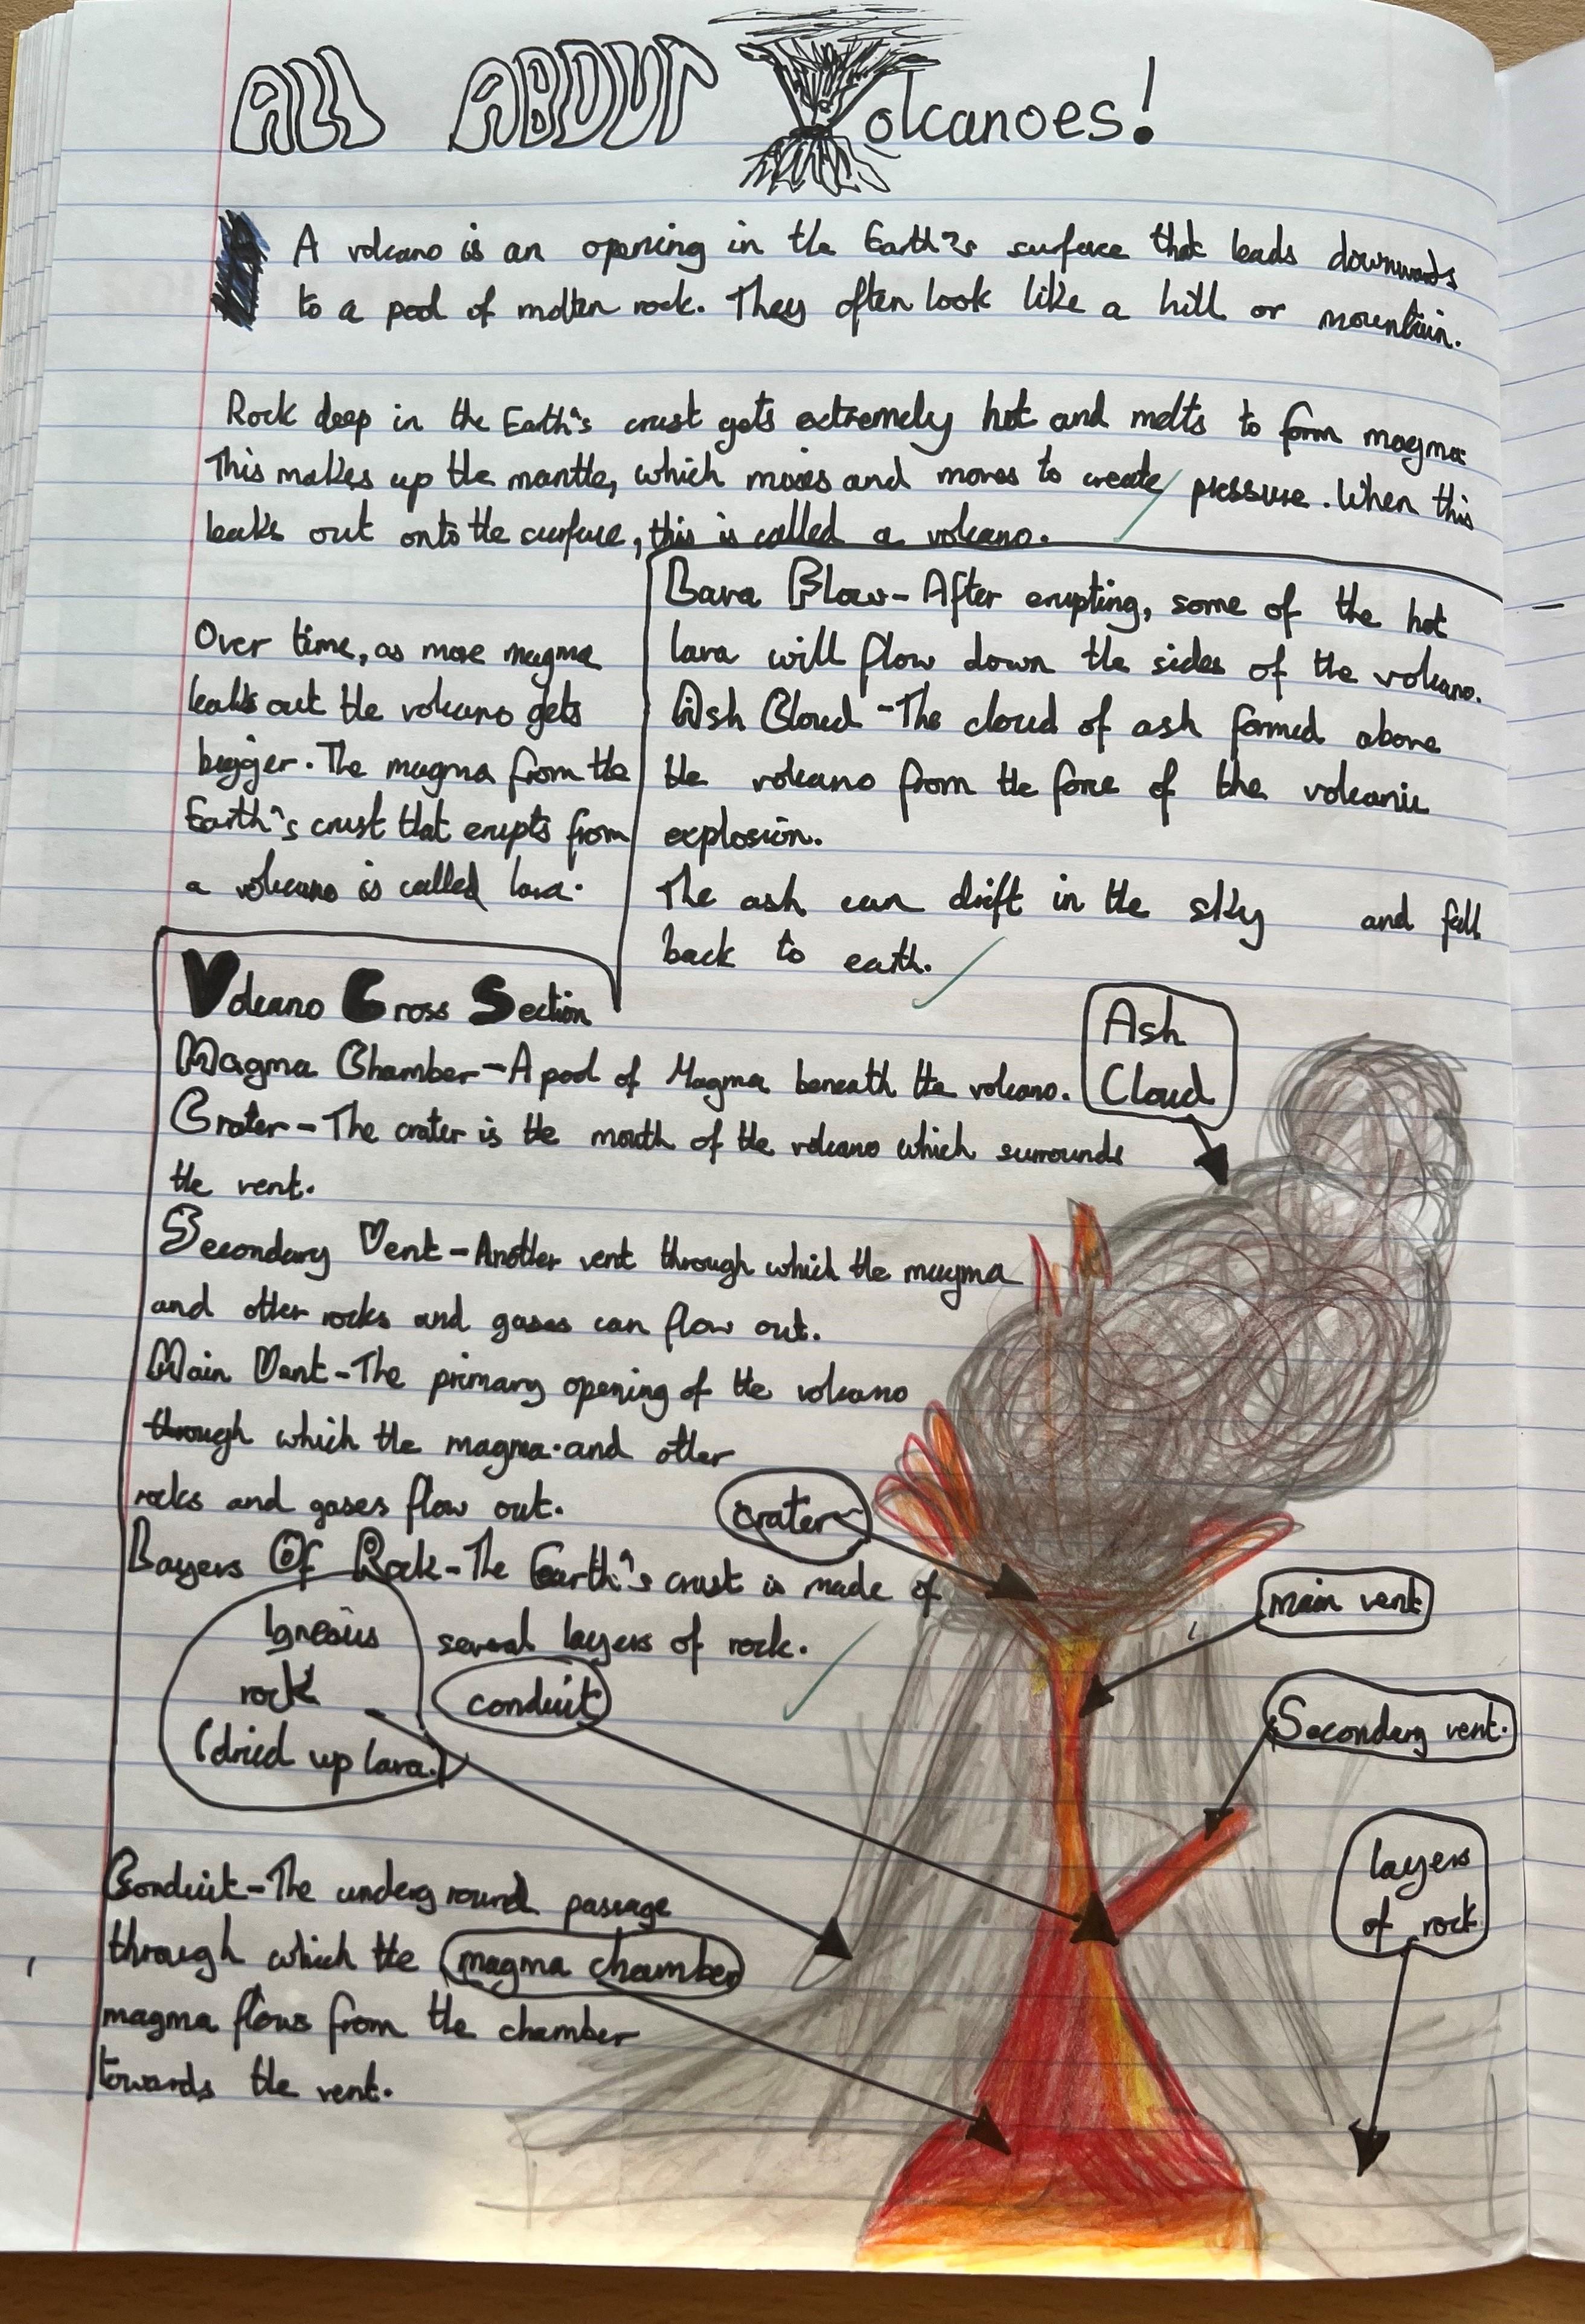 ALL ABOUT Volcanoes!
A volcano is an opening in the Earth's surface that leads downwards
to a pool of molten rock. They often look like a hill or mountain.
Rock deep in the Earth's crust gets extremely hot and melts to form magma.
This makes up the mantle, which mixes and moves to create pressure. When this
leaks out onto the surface, this is called a volcano.
Over time, as more magma
leaks out the volcano gets
bigger. The magma from the
Earth's crust that erupts from
a volcano is called lava.
Lava Flow - After erupting, some of the hot
lava will flow down the sides of the volcano.
Ash Cloud - The cloud of ash formed above
the volcano from the force of the volcanic
explosion.
The ash can drift in the sky and fall
back to earth.
Volcano Cross Section
Magma Chamber - A pool of Magma beneath the volcano.
Crater - The crater is the mouth of the volcano which surrounds
the vent.
Secondary Vent - Another vent through which the magma
and other rocks and gases can flow out.
Main Vent - The primary opening of the volcano
through which the magma and other
rocks and gases flow out.
Layers Of Rock - The Earth's crust is made of
several layers of rock.
Igneous
rock
(dried up lava.)
conduit
Conduit - The underground passage
through which the
magma chamber
magma flows from the chamber
towards the vent.
Ash
Cloud
crater
main vent
Secondary vent.
layers
of rock